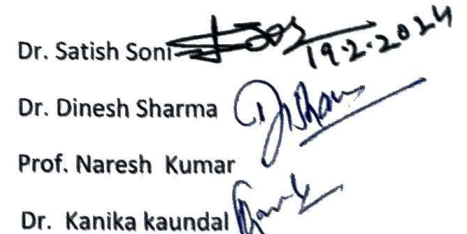 Dr. Satish Soni 19.2.2024
Dr. Dinesh Sharma
Prof. Naresh Kumar
Dr. Kanika kaundal